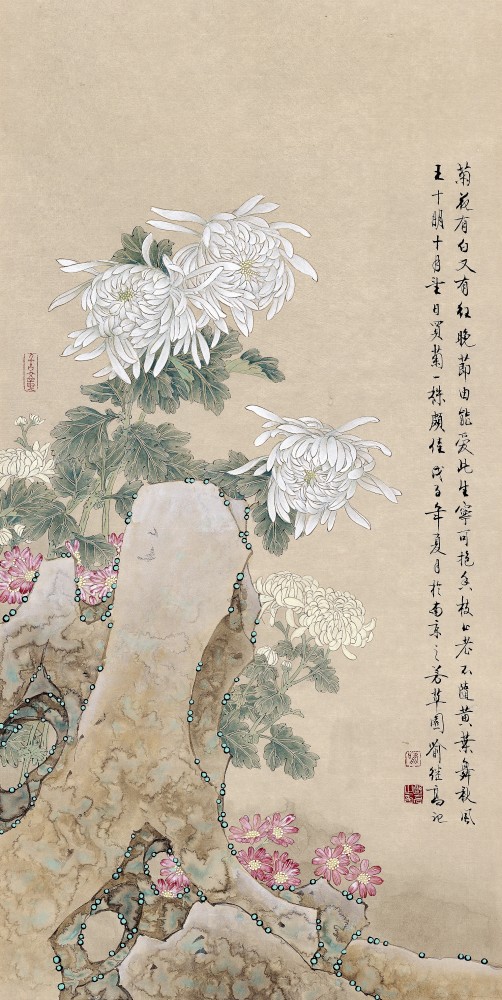 菊花有白又有红晚节由能爱此生宁可抱香枝上老不随黄叶舞秋风
王十朋十月望日买菊一株颇佳戊子年夏月于南京之若草园喻继高记